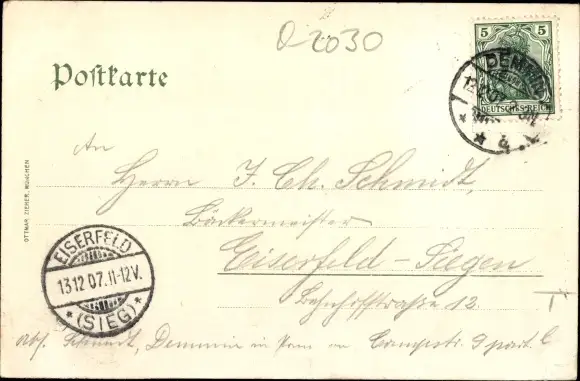 O-2030
Postkarte
5 5
DEUTSCHES REICH
DEMMIN
12.12.07
An
Herrn J. Ch. Schmidt,
Bäckermeister
Eiserfeld-Siegen
Bahnhofstraße 12.
OTTMAR ZIEHER, MÜNCHEN
EISERFELD
13 12 07. 11-12V.
* (SIEG) *
abs. Schmidt, Demmin in Pom